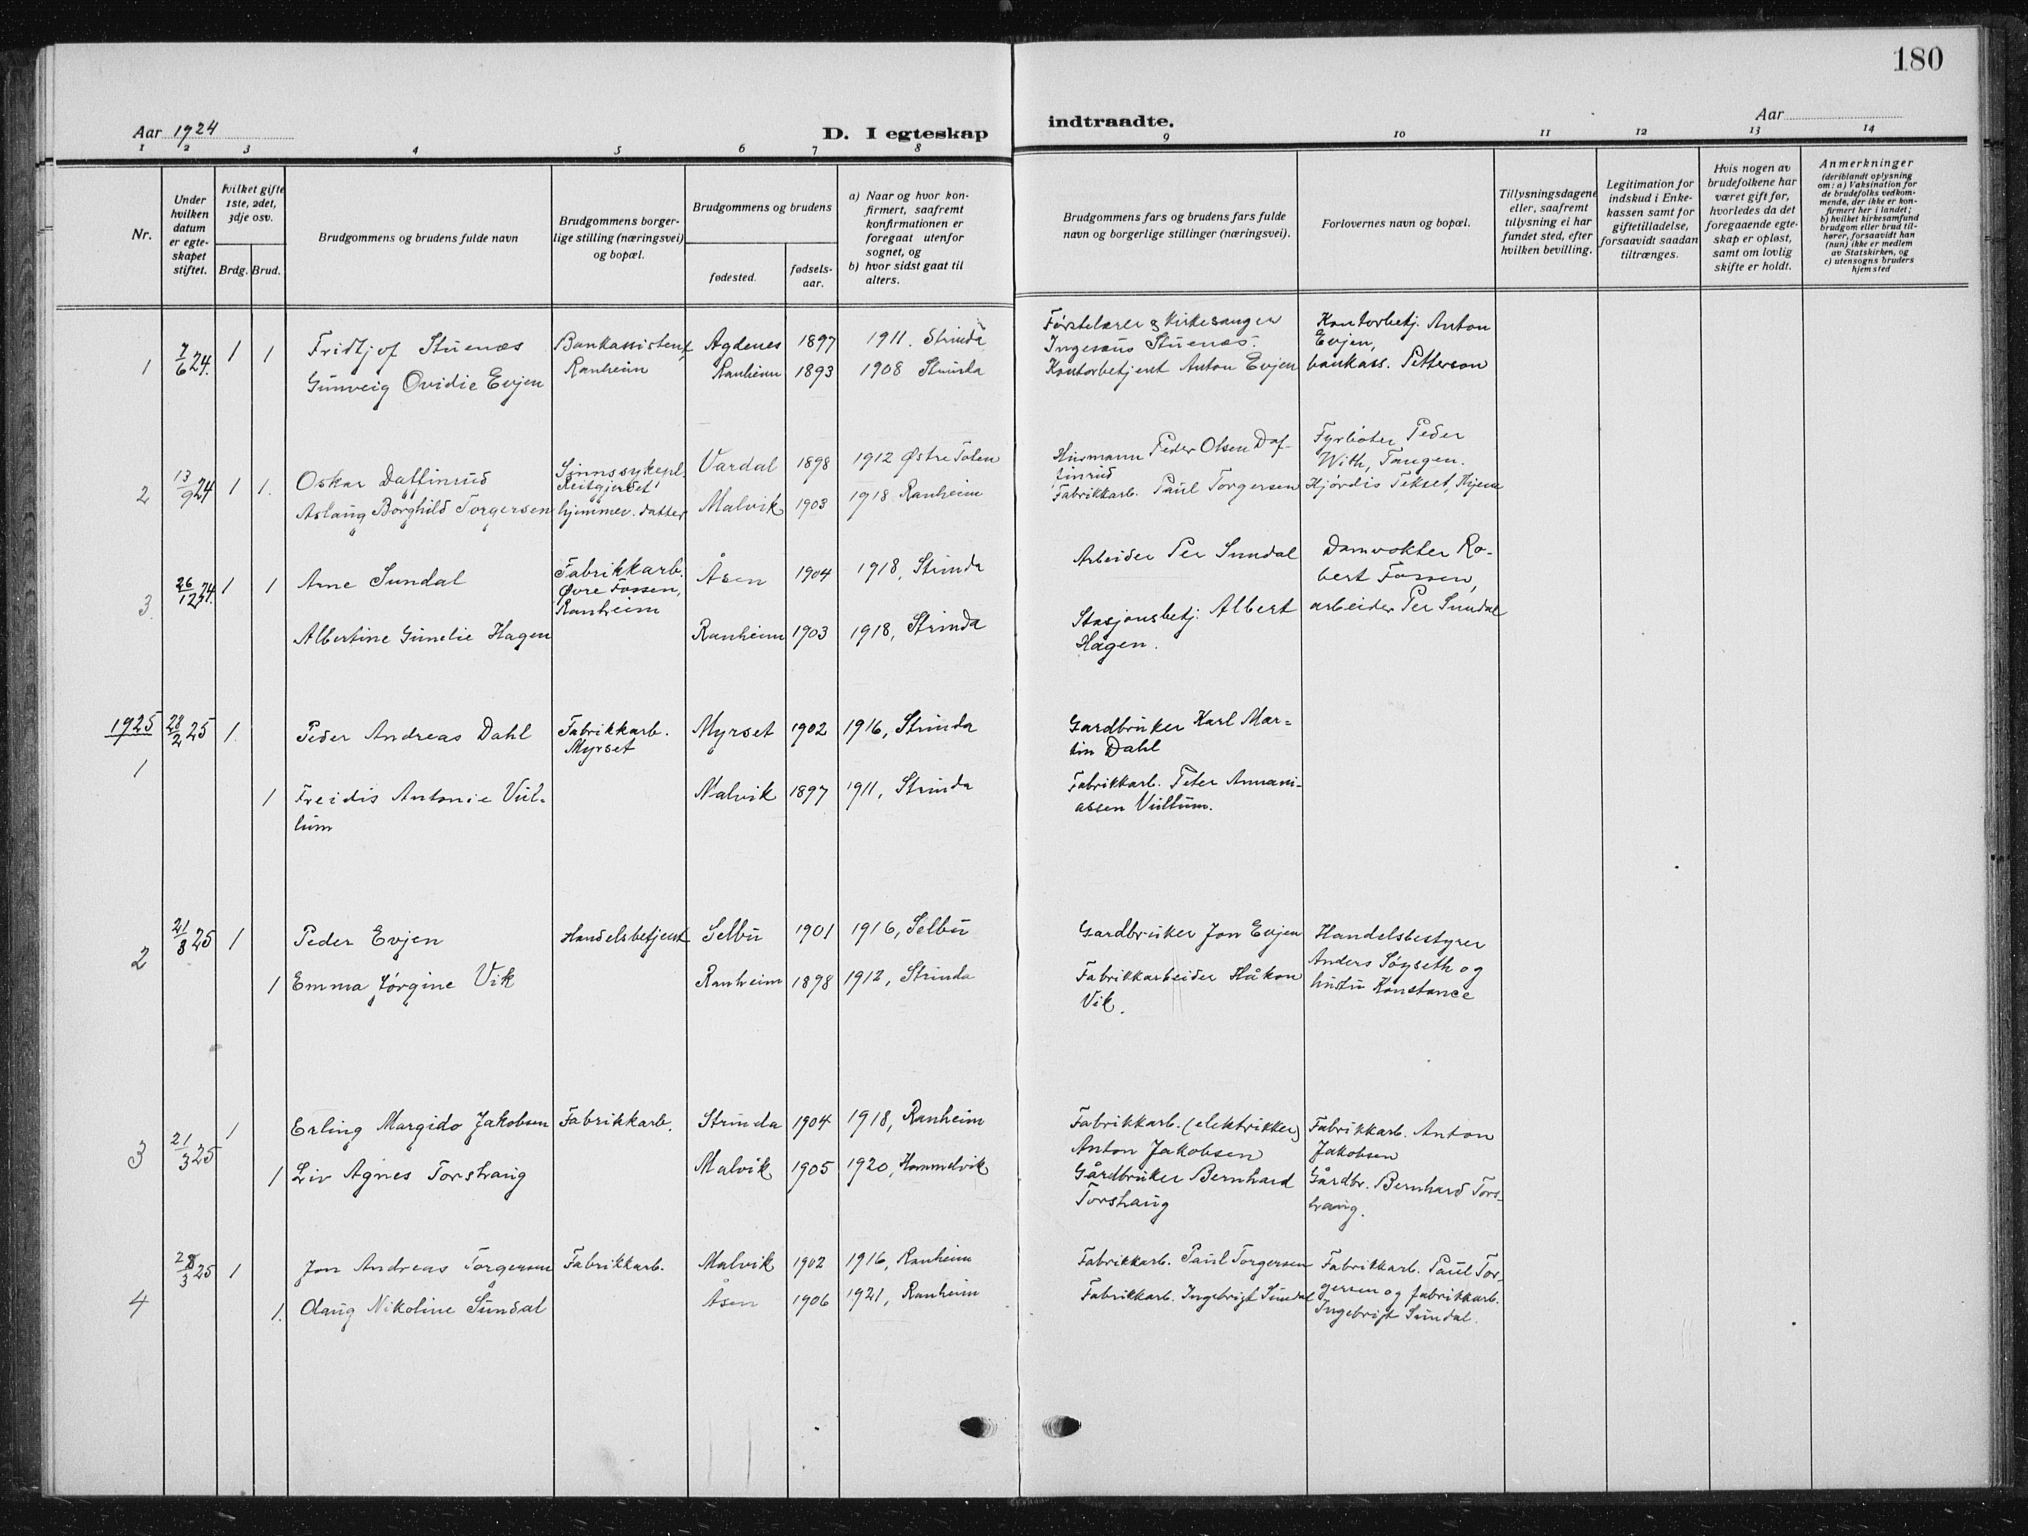 180
Aar 1924
D. I egteskap indtraadte.
Aar
1 2 3 4 5 6 7 8 9 10 11 12 13 14
Nr.
Under hvilken datum er egteskapet stiftet.
hvilket gifte 1ste, 2det, 3dje osv.
Brdg. Brud.
Brudgommens og brudens fulde navn
Brudgommens borgerlige stilling (næringsvei) og bopæl.
Brudgommens og brudens
fødested.
fødselsaar.
a) Naar og hvor konfirmert, saafremt konfirmationen er foregaat utenfor sognet, og
b) hvor sidst gaat til alters.
Brudgommens fars og brudens fars fulde navn og borgerlige stillinger (næringsvei).
Forlovernes navn og bopæl.
Tillysningsdagene eller, saafremt tillysning ei har fundet sted, efter hvilken bevilling.
Legitimation for indskud i Enkekassen samt for giftetilladelse, forsaavidt saadan tiltrænges.
Hvis nogen av brudefolkene har været gift før, hvorledes da det foregaaende egteskap er opløst, samt om lovlig skifte er holdt.
Anmerkninger
(deriblandt oplysning om: a) Vaksination for de brudefolks vedkommende, der ikke er konfirmert her i landet; b) hvilket kirkesamfund brudgom eller brud tilhører, forsaavidt han (hun) ikke er medlem av Statskirken, og c) utensogns bruders hjemsted
1 7/6 24. 1 1
Fridtjof Stuenæs
Bankassistent, Ranheim
Agdenes 1897 1911. Strinda
Førstelærer & Kirkesanger Ingenæus Stuenæs.
Kontorbetj. Anton Evjen,
Gunveig Ovidie Evjen
Ranheim 1893 1908 Strinda
Kontorbetjent Anton Evjen
bankass. Petterson
2 13/9 24 1 1.
Oskar Daffinrud
Sinnssykepl. Reitgjerdet
Vardal 1898 1912 Østre Toten
Husmann Peder Olsen Daffinrud
Fyrbøter Peder With, Tangen.
Aslaug Borghild Torgersen
hjemmev. datter
Malvik 1903 1918 Ranheim
Fabrikkarb. Paul Torgersen
Hjördis Tekset, Hjem
3 26/12 24. 1 1
Arne Sundal
Fabrikkarb. Øvre Fossen, Ranheim
Åsen 1904 1918, Strinda
Arbeider Per Sundal
Damvokter Robert Fossen,
Albertine Gunelie Hagen
Ranheim 1903 1918, Strinda
Stasjonsbetj. Albert Hagen.
arbeider Per Sundal
1925
1 28/2 25 1.
Peder Andreas Dahl
Fabrikkarb. Myrset
Myrset 1902 1916, Strinda
Gardbruker Karl Martin Dahl
1 Freidis Antonie Vullum
Malvik 1897 1911, Strinda
Fabrikkarb. Peter Annaniassen Vullum.
2 21/3 25 1
Peder Evjen
Handelsbetjent
Selbu 1901 1916, Selbu
Gardbruker Jon Evjen
Handelsbestyrer Anders Söyseth og hustru Konstance
1 Emma Jörgine Vik
Ranheim 1898 1912, Strinda
Fabrikkarbeider Håkon Vik.
3 21/3 25 1
Erling Margido Jakobsen
Fabrikkarb.
Strinda 1904 1918, Ranheim
Fabrikkarb. (elektrikker) Anton Jakobsen
Fabrikkarb. Anton Jakobsen
1 Liv Agnes Torshaug
Malvik 1905 1920, Hommelvik
Gårdbruker Bernhard Torshaug
Gårdbr. Bernhard Torshaug.
4 28/3 25 1
Jon Andreas Torgersen
Fabrikkarb.
Malvik 1902 1916, Ranheim
Fabrikkarb. Paul Torgersen
Fabrikkarb. Paul Torgersen og fabrikkarb. Ingebrigt Sundal.
1. Olaug Nikoline Sundal
Åsen 1906 1921, Ranheim
Fabrikkarb. Ingebrigt Sundal